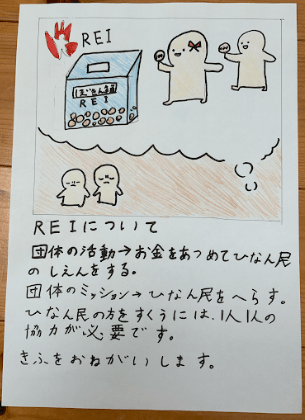 REI
ほごせん金箱
REI
REIについて
団体の活動→お金をあつめてひなん民
のしえんをする。
団体のミッション→ひなん民をへらす。
ひなん民の方をすくうには、1人1人の
協力が必要です。
きふをおねがいします。